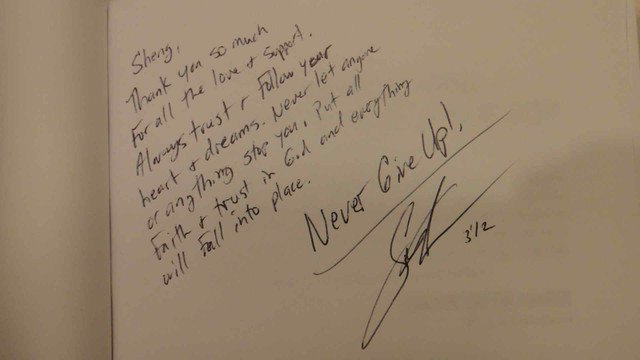 Sheng,
Thank you so much
For all the love + support.
Always trust + Follow your
heart + dreams. Never let anyone
or anything stop you. Put all
Faith + trust in God and everything
will fall into place.
Never Give Up!
3'2